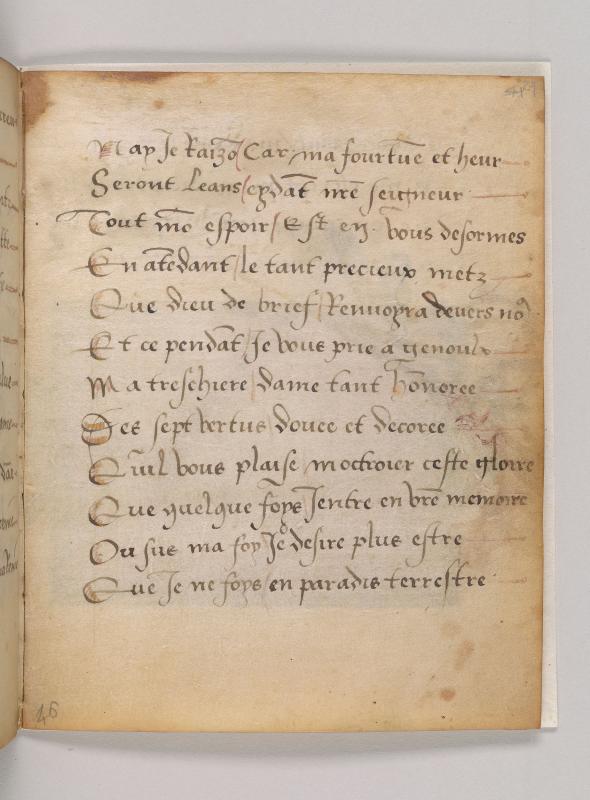 Nay Je Raizõ Car ma fourtũe et heur
Seront leans / cepdãt nr̃e seigneur
Tout mõ espoir / Est en vous desormes
En atẽdant / le tant precieux metz
Que dieu de brief / Renuoyra deuers no9
Et ce pendãt / Je vous prie a genoulx
Ma treschiere / dame tant hõnoree
Des sept vertus / douce et decoree
Quil vous plaise / moctroier ceste gloire
Que quelque foys Jentre en vr̃e memoire
Ou sus ma foy Je desire plus estre
Que Je ne foys / en paradis terrestre
46